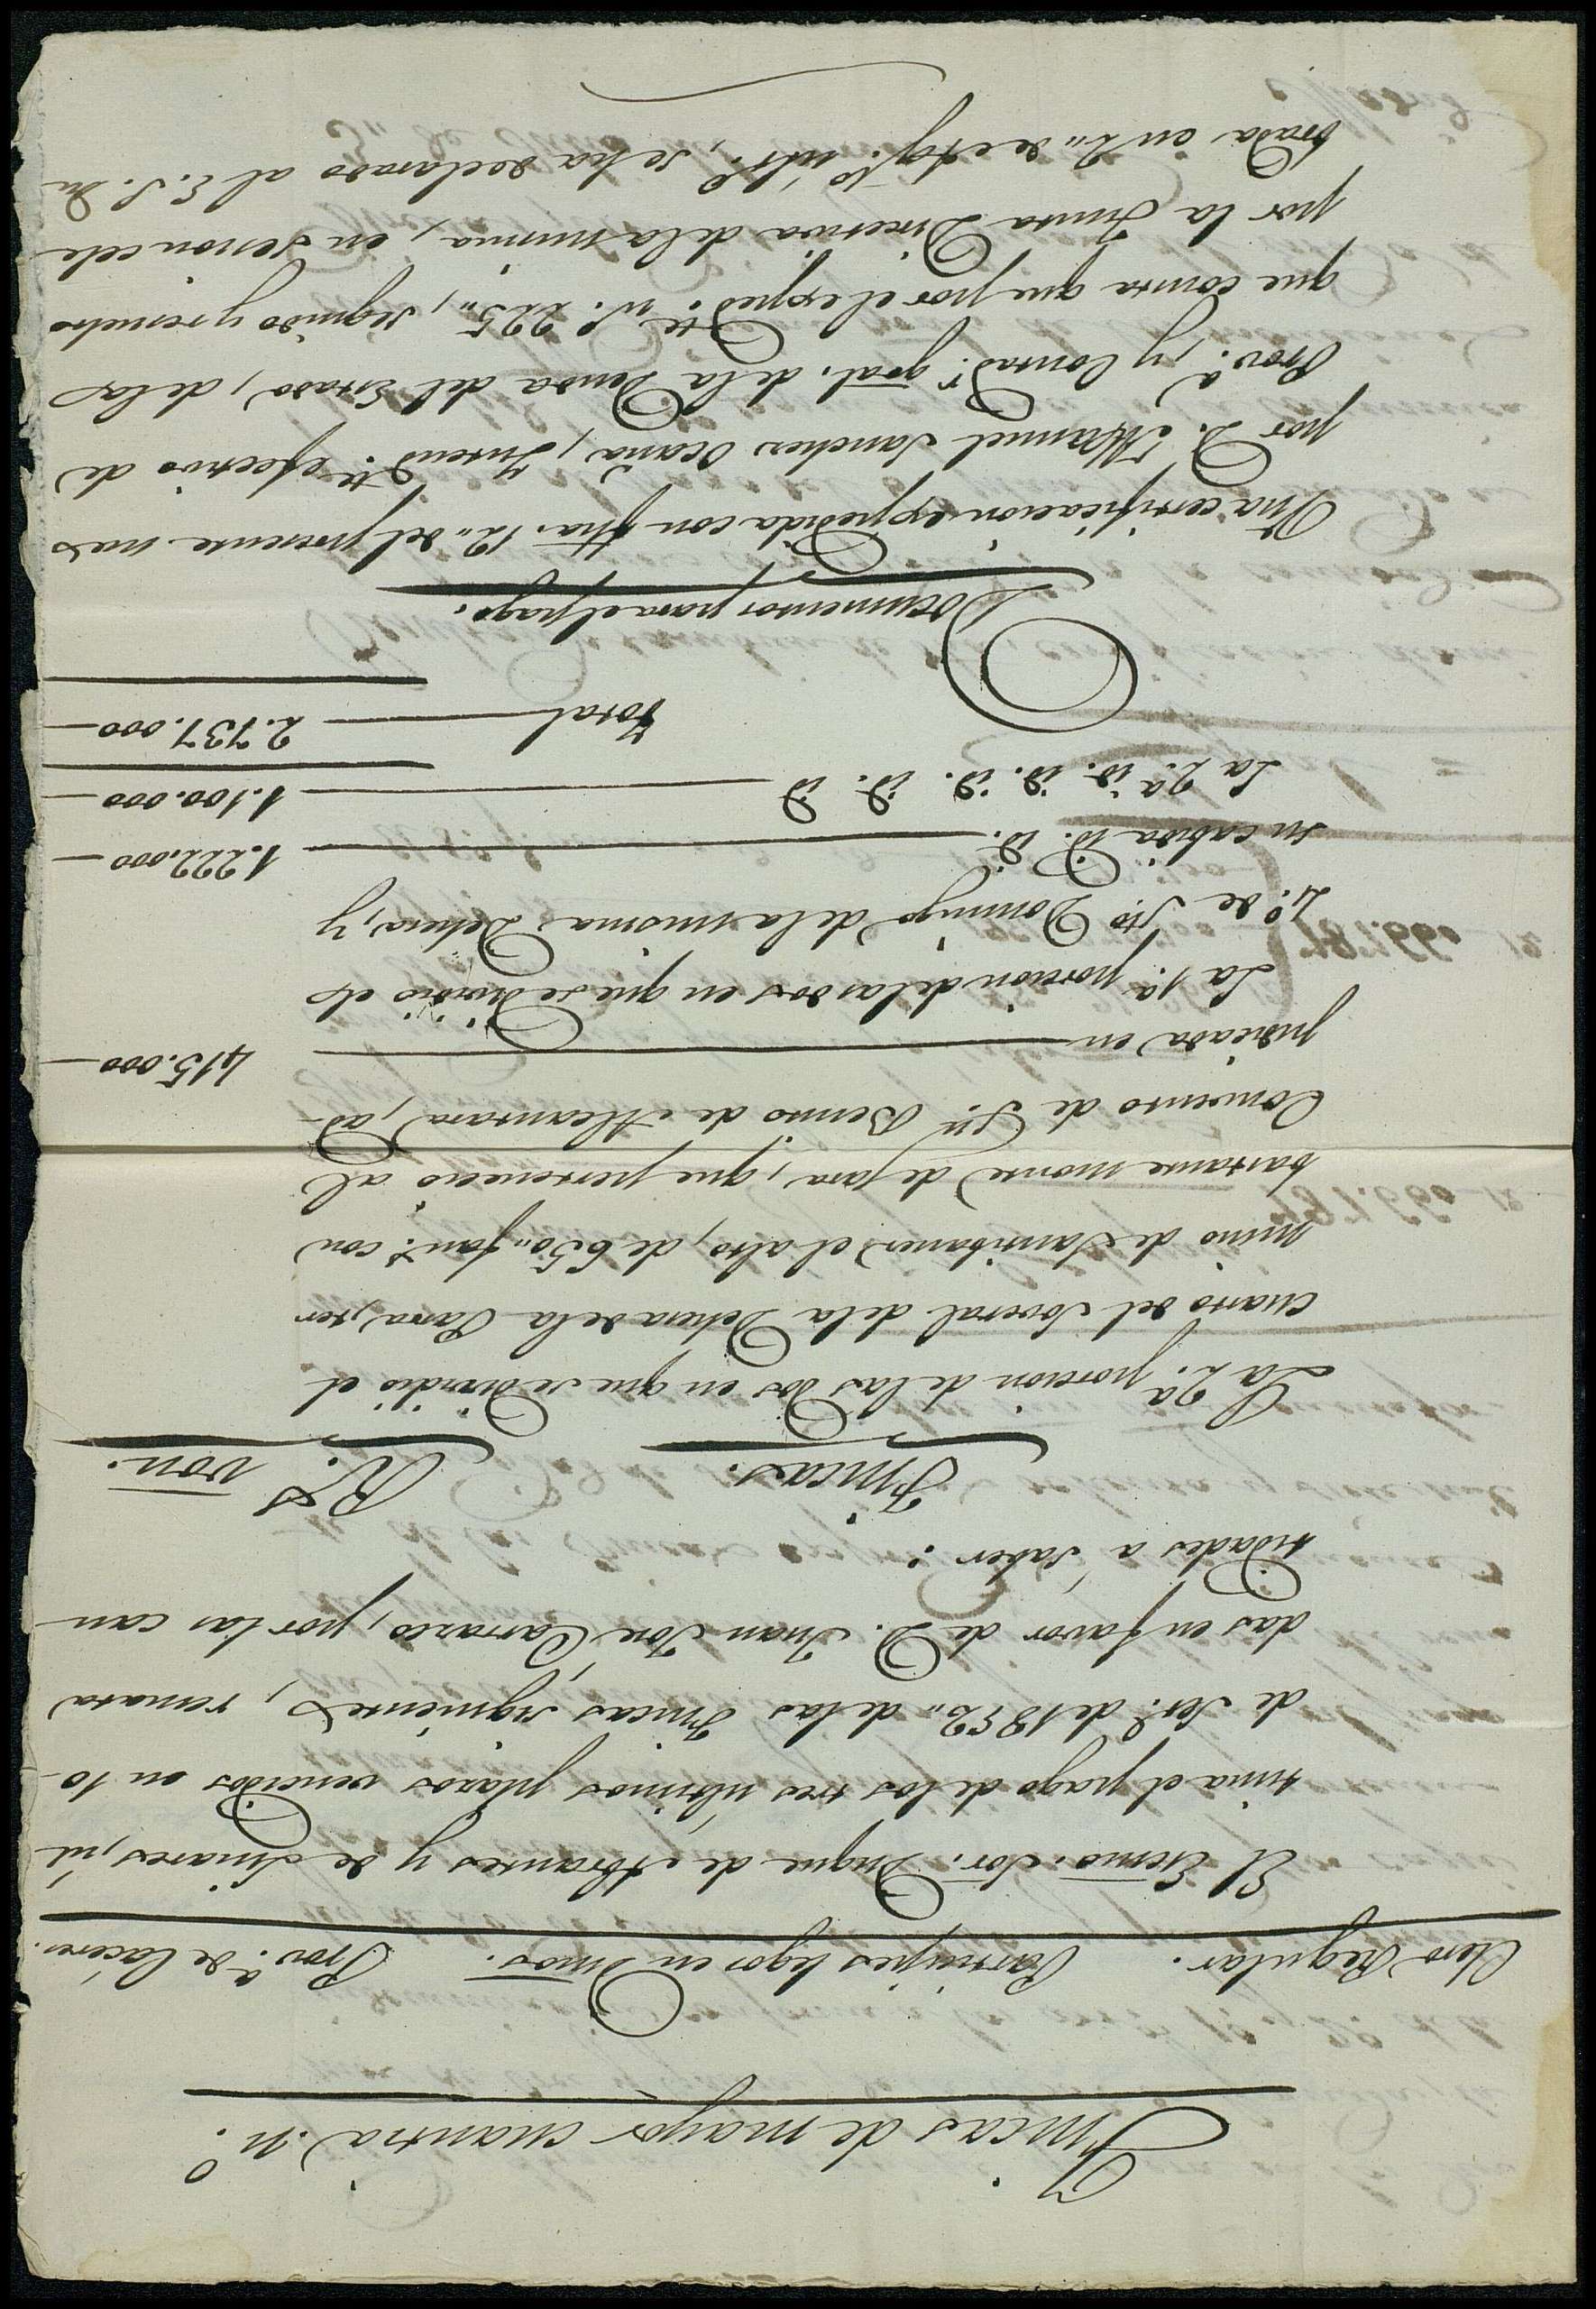 Fincas de mayor cuantia. n.º
Clero Regular. Partícipes legos en Dmos. Prov.ª de Cáceres.
El Excmo. Sor. Duque de Abrantes y de Linares, úl-
tima el pago de los tres últimos plazos vencidos en 10
de Set.e de 1852,, de las Fincas siguientes, remata
das en favor de D. Juan José Carrasco, por las can
tidades á saber:
Fincas. Rs. von.
La 2.ª porcion de las dos en que se dividió el
cuarto del Soveral de la Dehesa de la Parra, ter
mino de Santibañez el alto, de 650,, fan.s con
bastante monte de jara, que perteneció al
Convento de Sn. Benito de Alcantara, ad-
judicada en 415.000
La 1.ª porcion de las dos en que se dividió el
4.º de Sto. Domingo de la misma Dehesa, y
su cabida id. id. 1.222.000
La 2.ª id. id. id. id. id 1.100.000
Total 2.737.000
Documentos para el pago.
Una certificacion expedida con fha. 12,, del presente mes
por D. Manuel Sanchez Ocaña, Intend.te efectivo de
Prov.ª, y Contad.r gral. de la Deuda del Estado, de la
que consta que por el exped.te n.º 225,, seguido y resuelto
por la Junta Directiva de la misma, en sesion cele
brada en 2,, de Ag.to últ.º, se ha declarado al E. S. Du